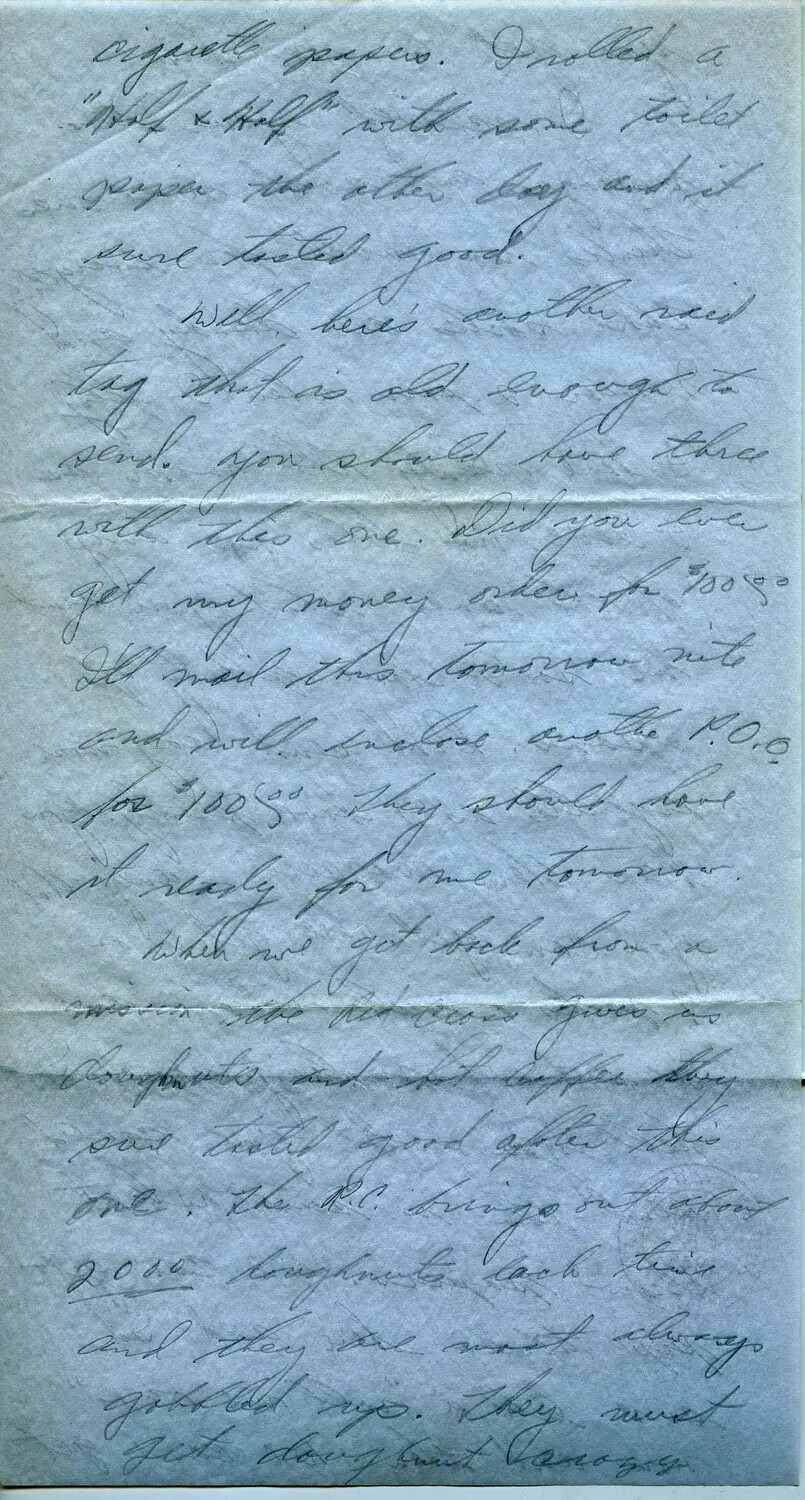 cigarette papers. I rolled a
"Half & Half" with some toilet
paper the other day and it
sure tasted good.
Well, here's another raid
tag that is old enough to
send. You should have three
with this one. Did you ever
get my money order for $100.00
I'll mail this tomorrow nite
and will enclose another P.O.O
for $100.00 They should have
it ready for me tomorrow.
When we get back from a
mission the Red Cross gives us
doughnuts and hot coffee they
sure tasted good after this
one. The R.C. brings out about
2000 doughnuts each time
and they are most always
gobbled up. They must
get doughnut crazy